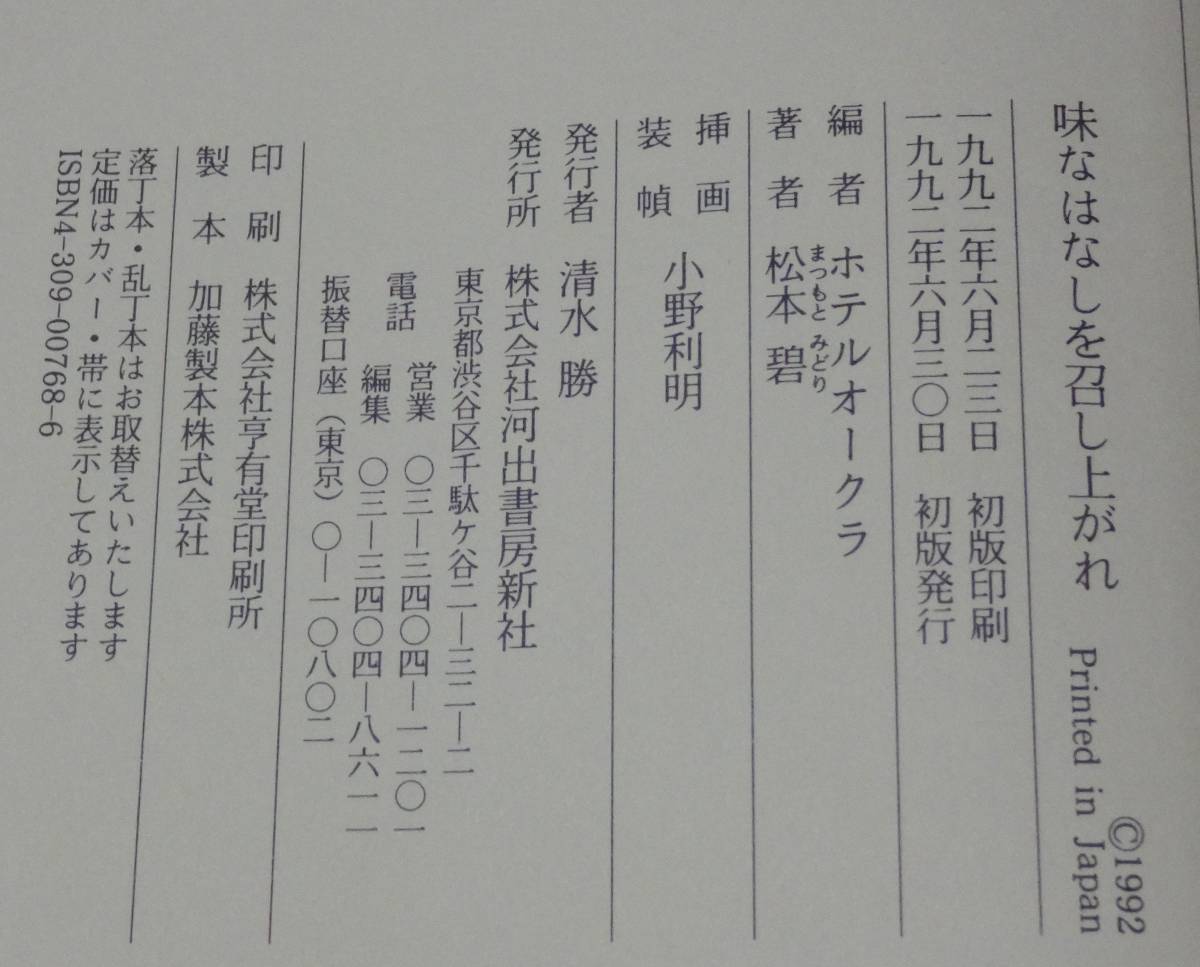 味なはなしを召し上がれ Printed in Japan
©1992
一九九二年六月二三日 初版印刷
一九九二年六月三〇日 初版発行
編者 ホテルオークラ
著者 松本 碧
まつもと みどり
挿画
装幀
小野利明
発行者 清水 勝
発行所 株式会社河出書房新社
東京都渋谷区千駄ケ谷二―三二―二
電話
営業 〇三―三四〇四―一二〇一
編集 〇三―三四〇四―八六一一
振替口座(東京)〇―一〇八〇二
印刷 株式会社亨有堂印刷所
製本 加藤製本株式会社
落丁本・乱丁本はお取替えいたします
定価はカバー・帯に表示してあります
ISBN4-309-00768-6